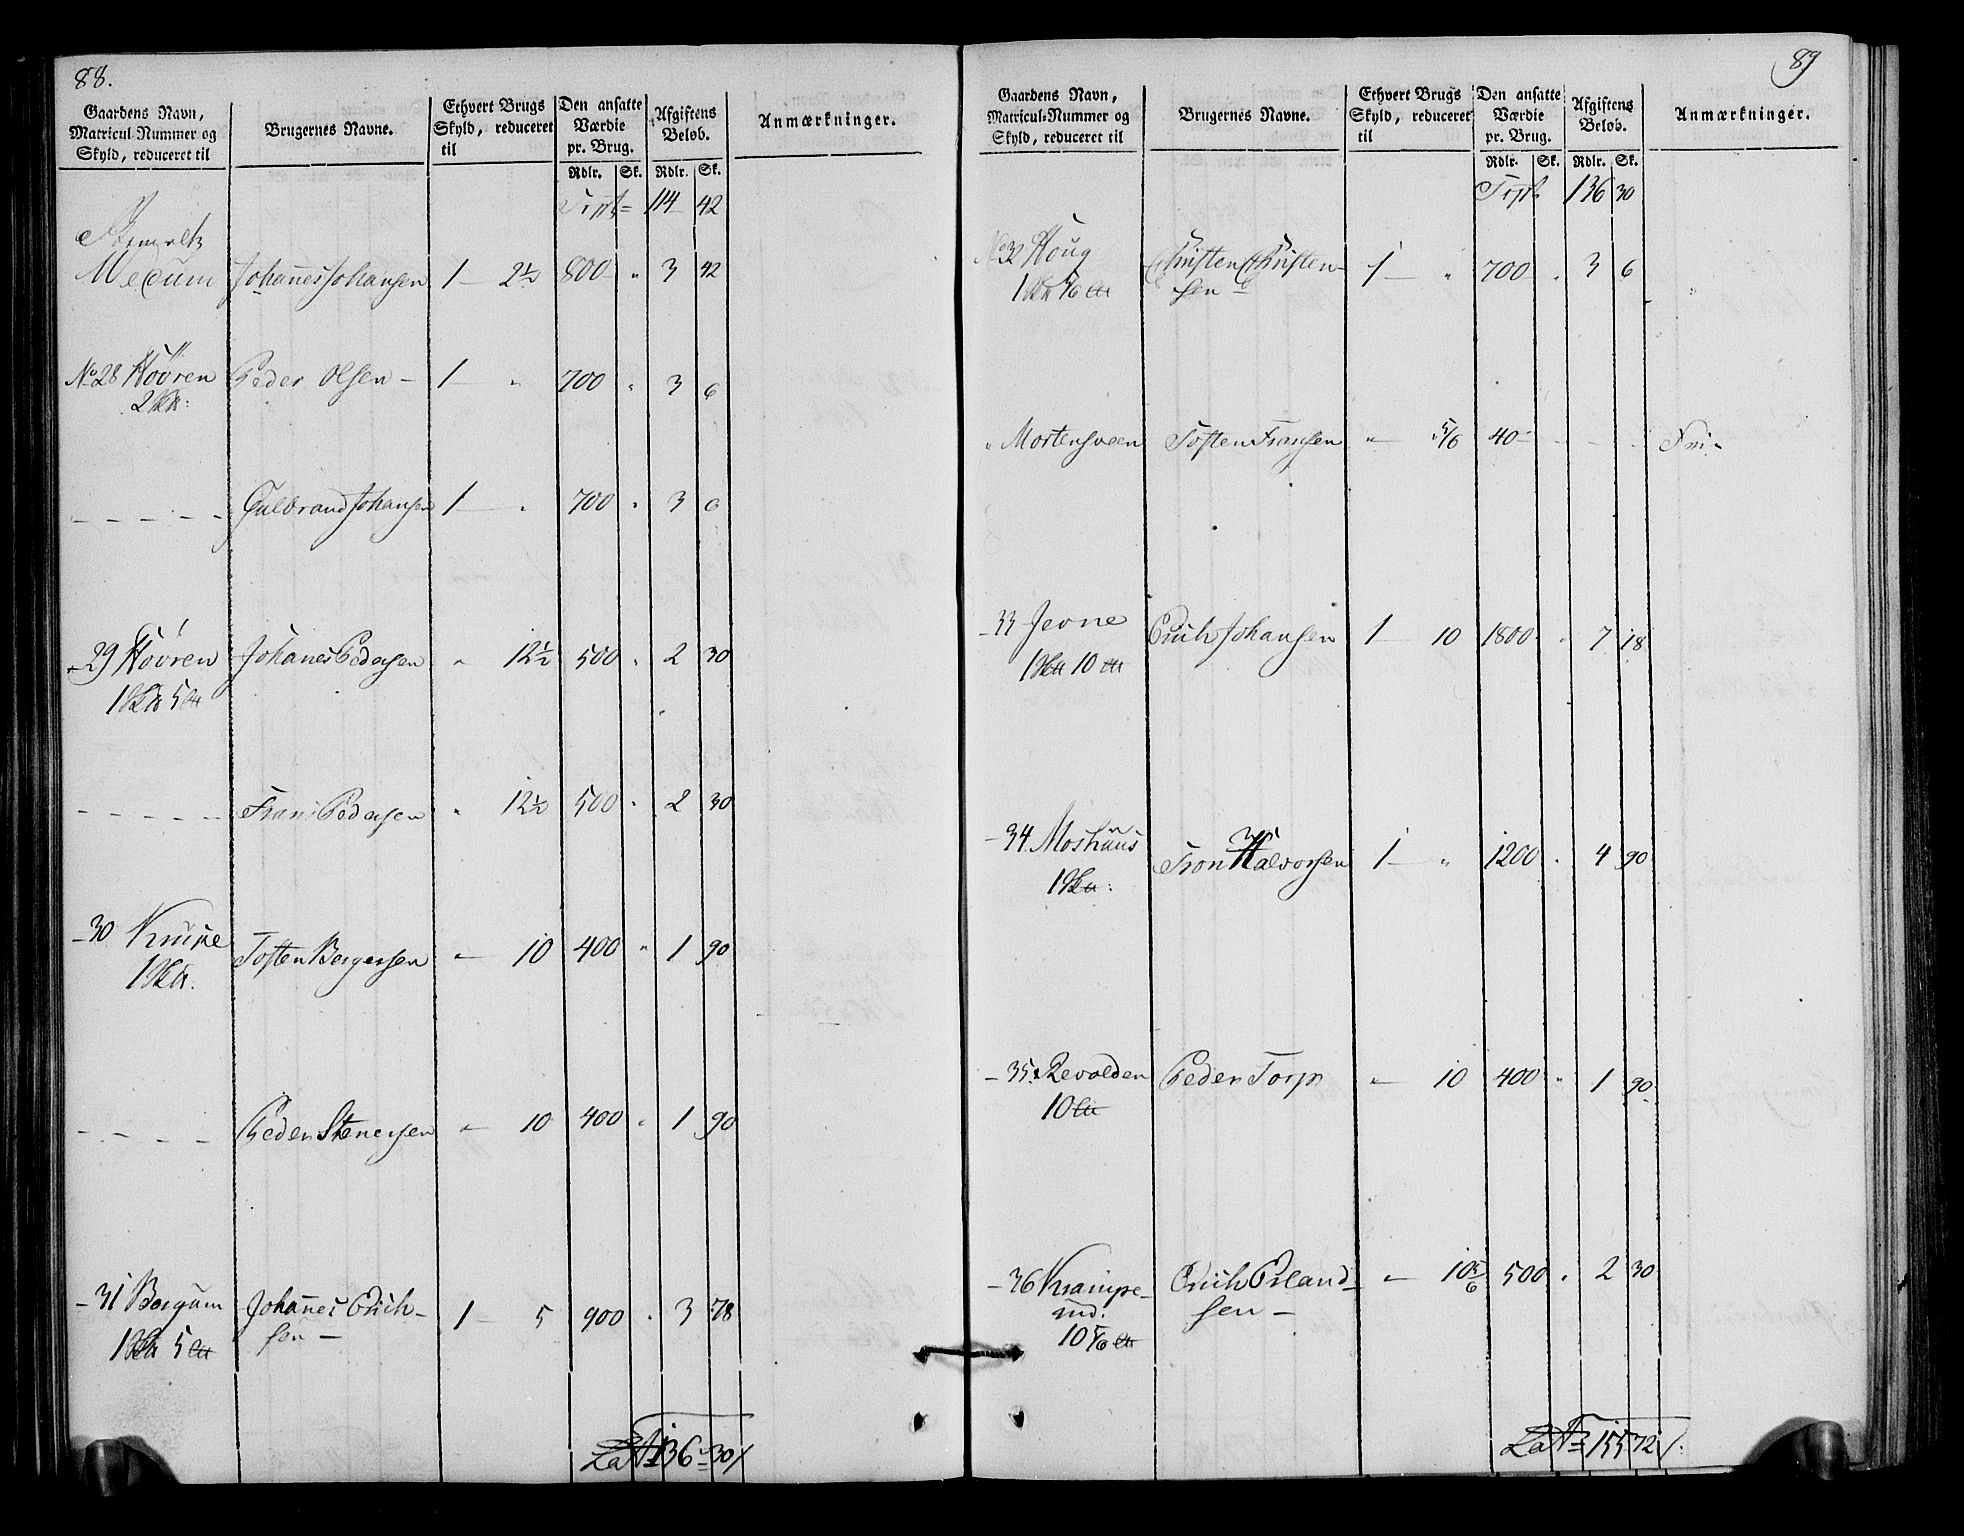 88.
Gaardens Navn, Matricul-Nummer og Skyld, reduceret til
Brugernes Navne.
Ethvert Brugs Skyld, reduceret til
Den ansatte Værdie pr. Brug.
Afgiftens Beløb.
Anmærkninger.
Rdlr. Sk. Rdlr. Sk.
Trspt 114 42
Medum Johannes Johansen 1 – 2½ 800 " 3 42
No 28 Hovren Peder Olsen – 1 – " 700 " 3 6
2
– – – – – Gulbrand Johansen 1 – " 700 " 3 6
– 29 Hovren Johanes Pedersen " 12½ 500 " 2 30
1 5
– – – – – Frans Pedersen " 12½ 500 " 2 30
– 30 Toften Bergersen " 10 400 " 1 90
1
– – – – Peder Stenersen " 10 400 " 1 90
– 31 Bergum Johannes Erich-
1 5 sen – 1 – 5 900 " 3 78
Lat 136 30
89
Gaardens Navn, Matricul-Nummer og Skyld, reduceret til
Brugernes Navne.
Ethvert Brugs Skyld, reduceret til
Den ansatte Værdie pr. Brug.
Afgiftens Beløb.
Anmærkninger.
Rdlr. Sk. Rdlr. Sk.
Trspt 136 30
No 32 Houg Christen Christen-
1 5/6 sen – 1 – " 700 " 3 6
" Mortensveen Toften Fransen " 5/6 40 – – – Fri –
– 33 Jevne Erich Johansen 1 – 10 1800 " 7 18
1 10
– 34 Moshuus Tron Halvorsen 1 – " 1200 " 4 90
1
– 35 Revolden Peder Torp " 10 400 " 1 90
10
– 36 Krampe- Erich Erland-
rud. sen – " 10 5/6 500 " 2 30
10 5/6
Lat 155 72